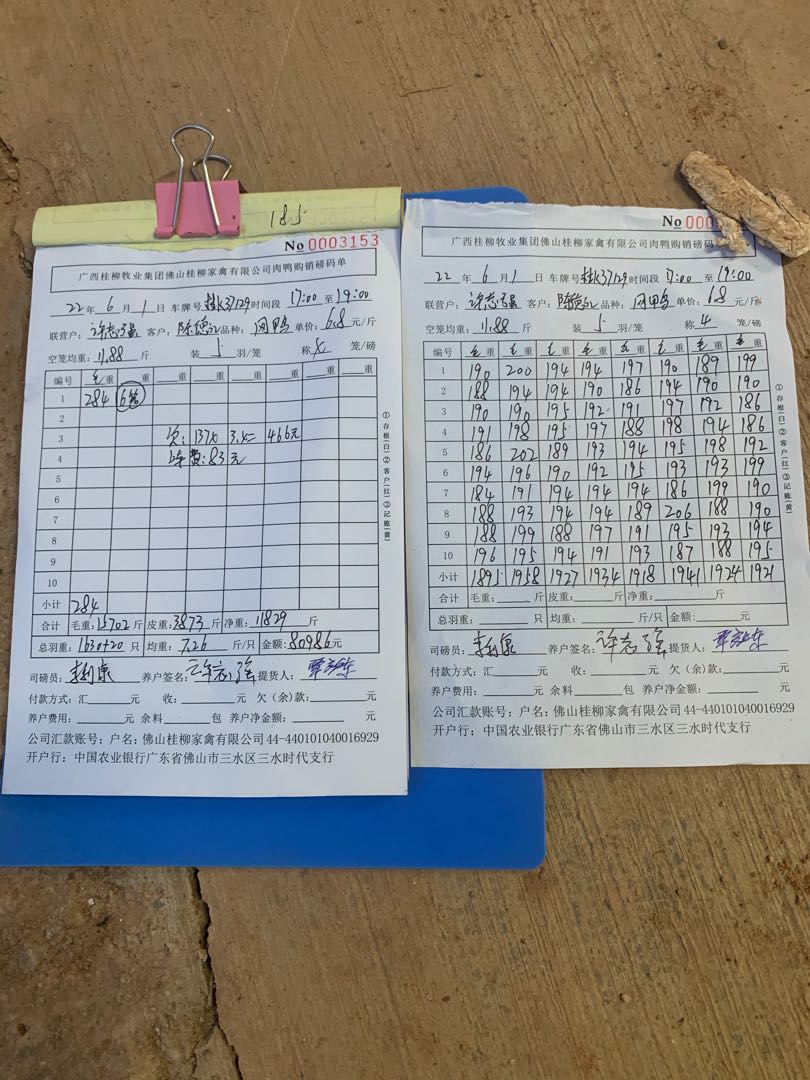 185
No 0003153
广西桂柳牧业集团佛山桂柳家禽有限公司肉鸭购销磅码单
22年 6月 1日 车牌号 37129 时间段 17:00 至 19:00
联营户: 客户: 陈德 品种: 单价: 6.8 元/斤
空笼均重: 11.88 斤 装 5 羽/笼 称 笼/磅
编号 毛重 重 重 重 重 重 重 重
1 284 6笼
2
3 欠: 137X 3.4= 466元
4 费: 83元
5
6
7
8
9
10
小计 284
合计 毛重: 15702 斤 皮重: 3873 斤 净重: 11829 斤
总羽重: 1630+20 只 均重: 7.26 斤/只 金额: 80986元
司磅员: 李利康 养户签名: 提货人:
付款方式: 汇 元 收: 元 欠(余)款: 元
养户费用: 元 余料 包 养户净金额: 元
公司汇款账号: 户名: 佛山桂柳家禽有限公司 44-440101040016929
开户行: 中国农业银行广东省佛山市三水区三水时代支行
①存根(白)②客户(红)③记账(黄)
No 000
广西桂柳牧业集团佛山桂柳家禽有限公司肉鸭购销磅码
22年 6月 1日 车牌号 37129 时间段 17:00 至 19:00
联营户: 客户: 陈德 品种: 单价: 6.8 元/斤
空笼均重: 11.88 斤 装 5 羽/笼 称 4 笼/磅
编号 毛重 毛重 毛重 毛重 毛重 毛重 毛重 毛重
1 190 200 194 194 197 190 189 199
2 188 194 194 190 186 194 190 190
3 190 190 195 192 191 197 192 186
4 191 198 195 197 188 198 194 186
5 186 202 189 193 194 195 198 192
6 194 196 190 192 195 193 193 199
7 184 191 194 194 194 186 199 190
8 188 193 194 194 189 206 188 190
9 188 199 188 197 191 195 193 194
10 196 195 194 191 193 187 188 195
小计 1895 1958 1927 1934 1918 1941 1924 1921
合计 毛重: 斤 皮重: 斤 净重: 斤
总羽重: 只 均重: 斤/只 金额: 元
司磅员: 李利康 养户签名: 提货人:
付款方式: 汇 元 收: 元 欠(余)款: 元
养户费用: 元 余料 包 养户净金额: 元
公司汇款账号: 户名: 佛山桂柳家禽有限公司 44-440101040016929
开户行: 中国农业银行广东省佛山市三水区三水时代支行
①存根(白)②客户(红)③记账(黄)